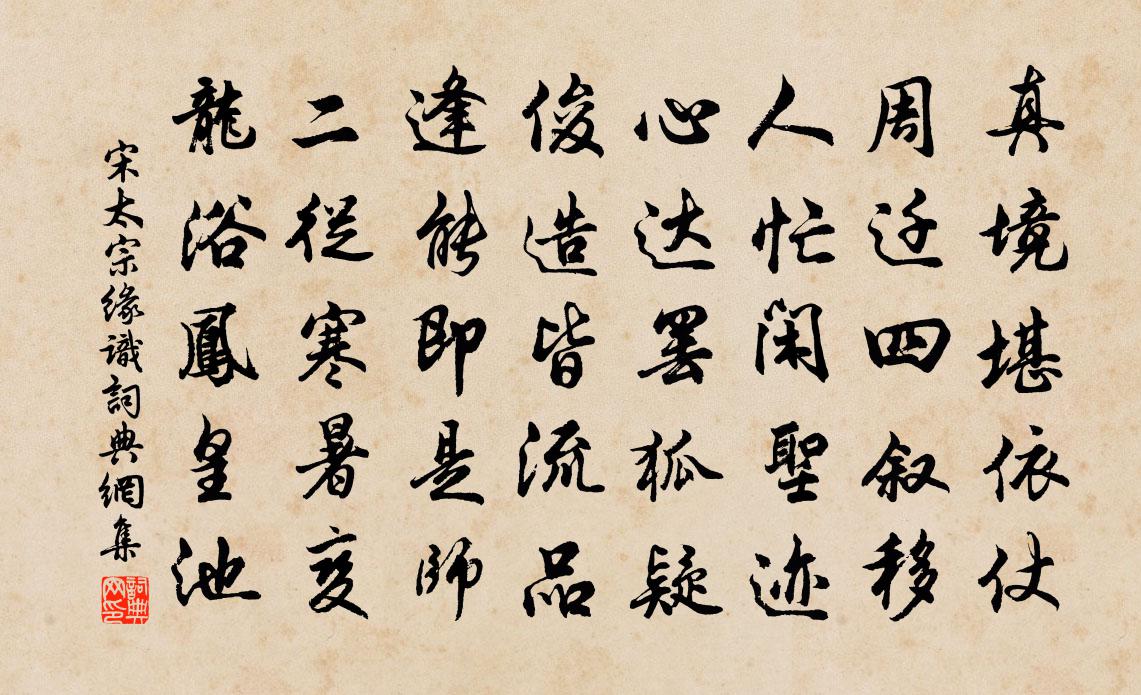 真境堪依仗
周迁四叙移
人忙闲聖迹
心达罢狐疑
俊造皆流品
逢能即是师
二從寒暑变
龍浴鳳皇池
宋太宗緣識詞典網集
詞典网印